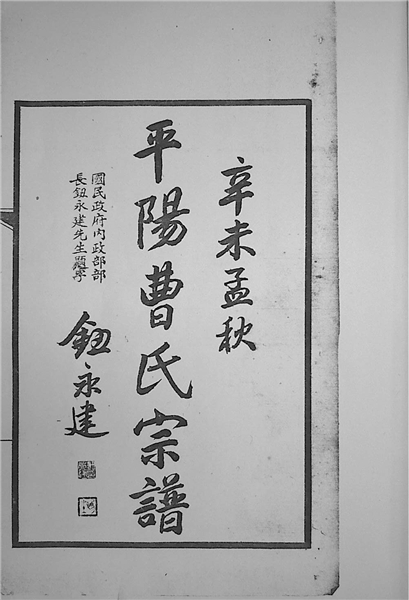 辛未孟秋
平陽曹氏宗譜
國民政府内政部部
長鈕永建先生題字
鈕永建